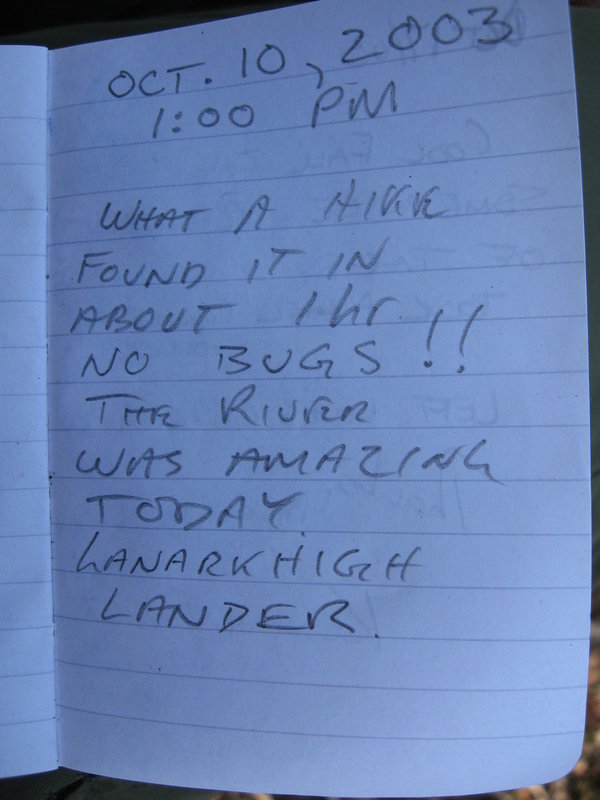 OCT. 10, 2003
1:00 PM
WHAT A HIKE
FOUND IT IN
ABOUT 1 hr.
NO BUGS!!
THE RIVER
WAS AMAZING
TODAY.
LANARKHIGH
LANDER.